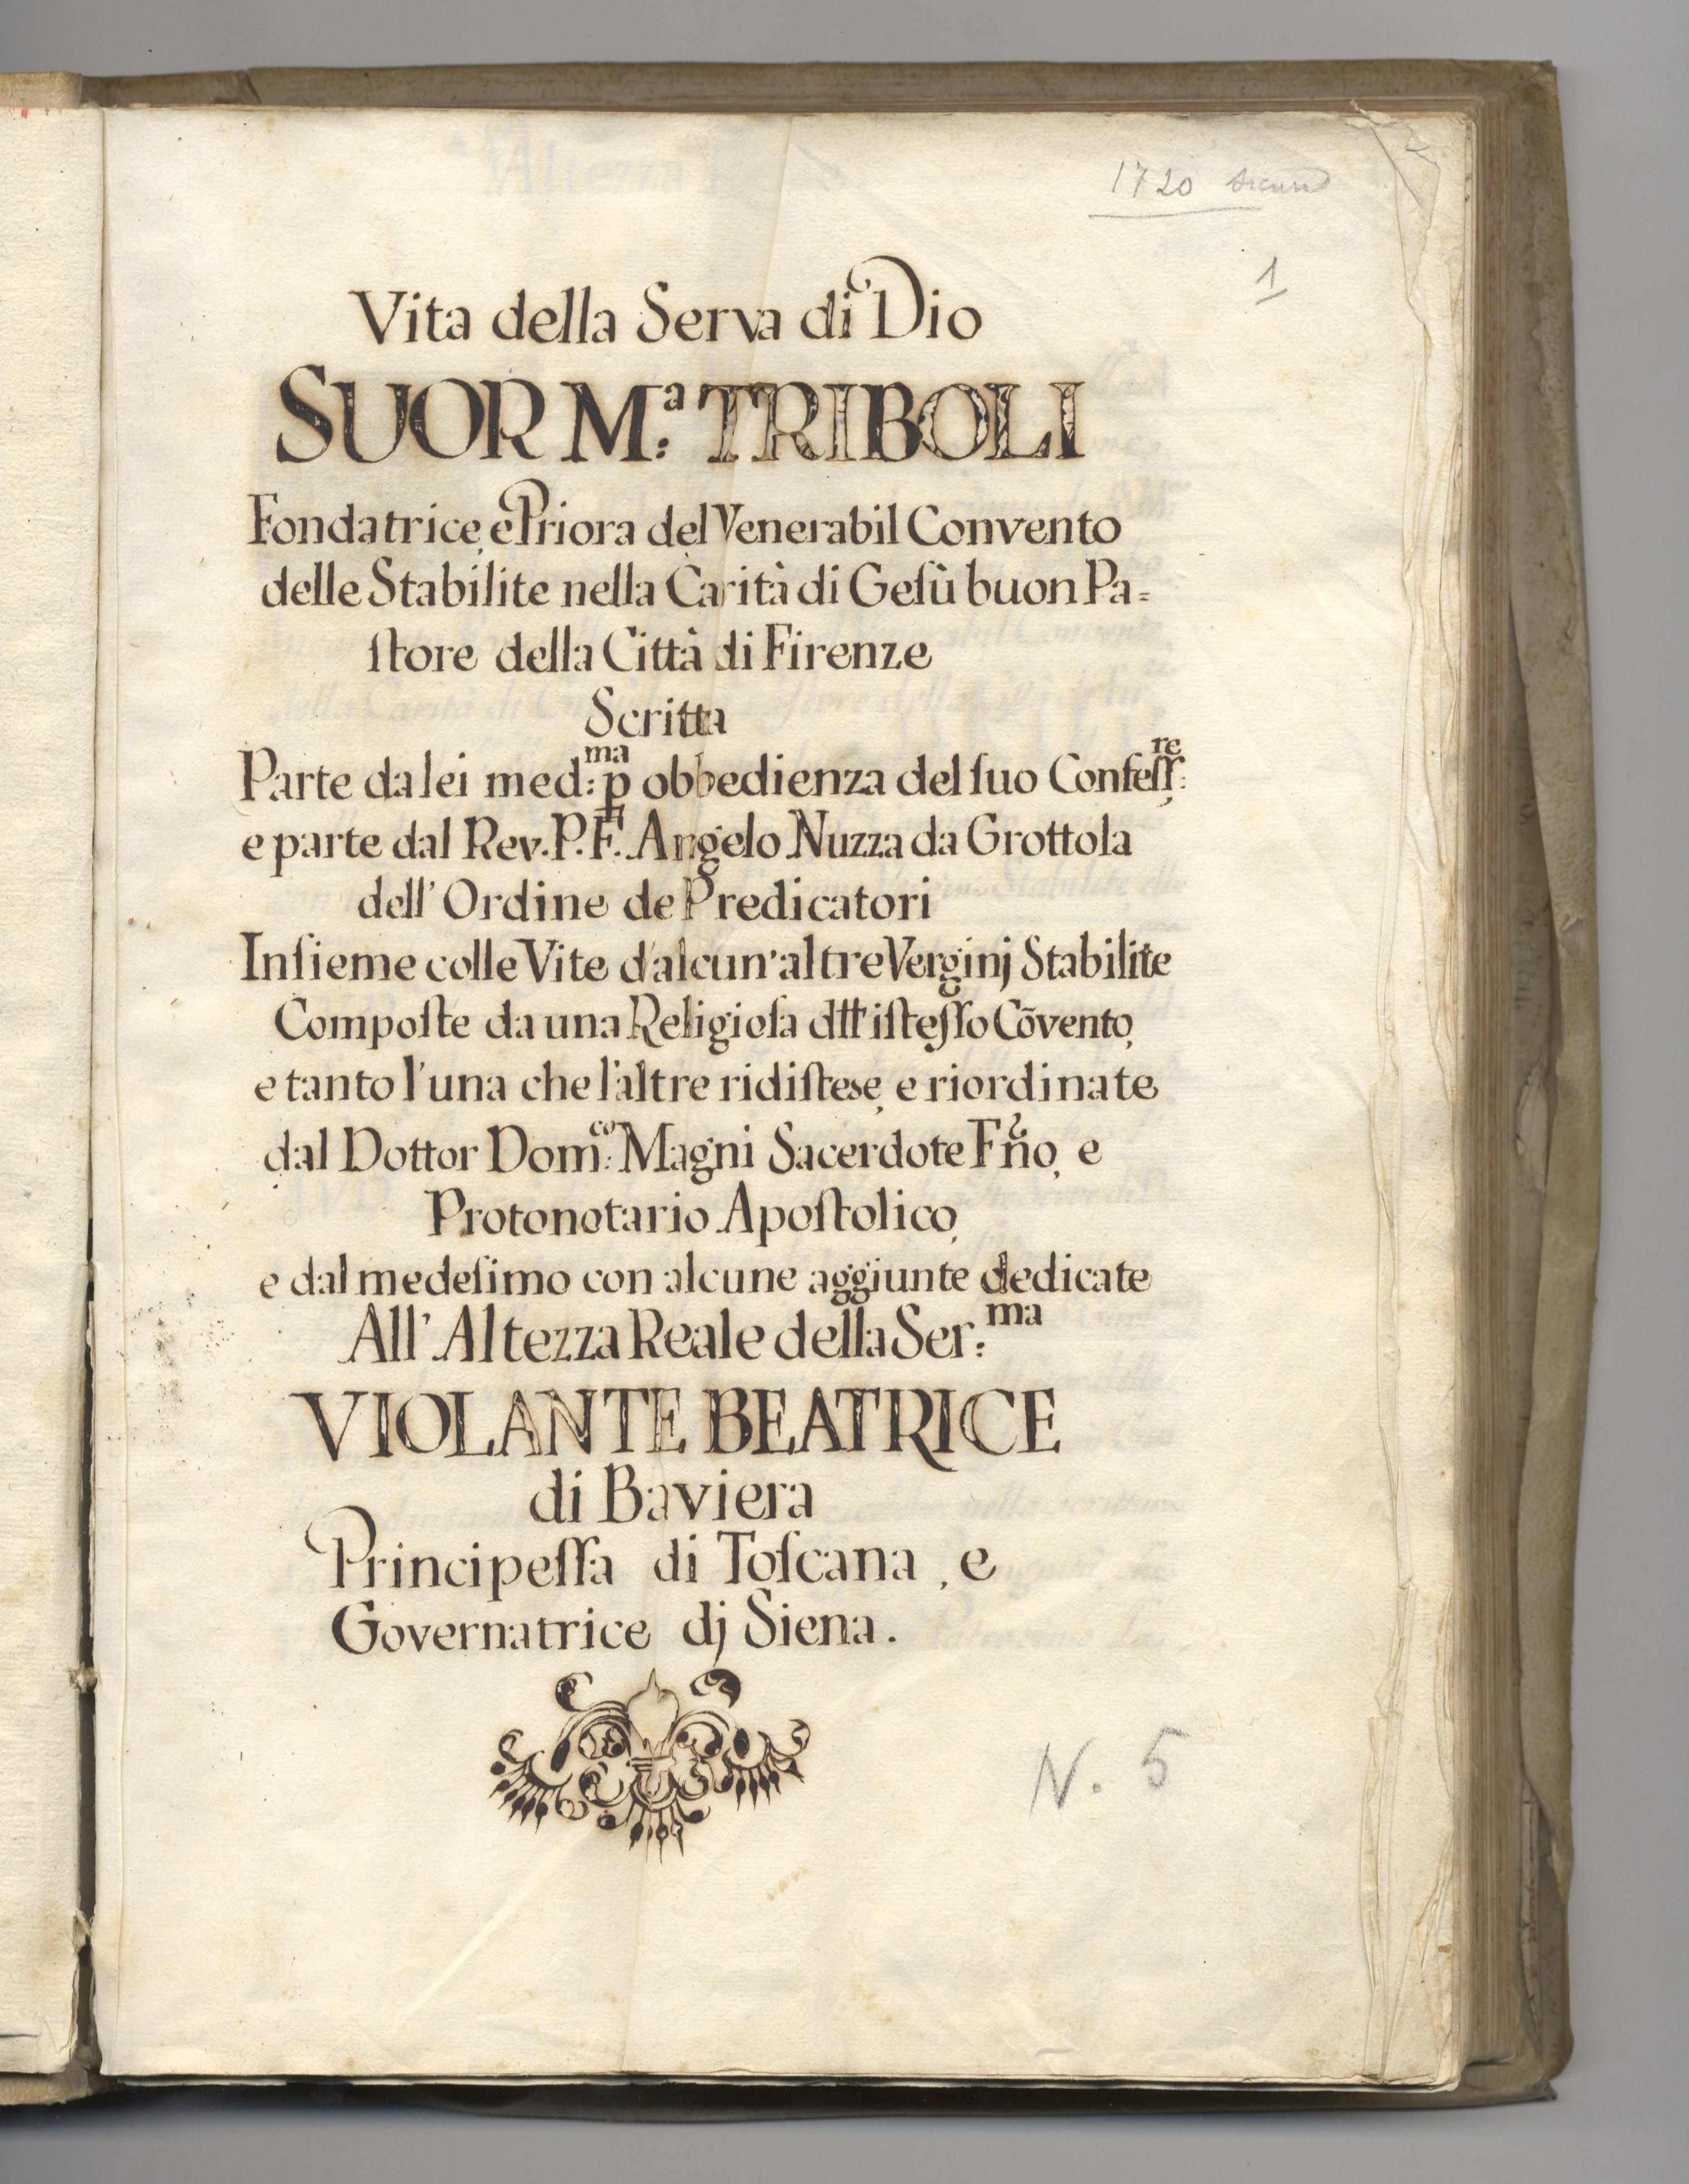 1720
1
Vita della Serva di Dio
SUOR M.ª TRIBOLI
Fondatrice, e Priora del Venerabil Convento
delle Stabilite nella Carità di Geſù buon Pa=
ſtore della Città di Firenze
Scritta
Parte da lei med:ᵐᵃ p obbedienza del ſuo Confeſſ:ʳᵉ
e parte dal Rev. P. F. Angelo Nuzza da Grottola
dell' Ordine de Predicatori
Inſieme colle Vite d'alcun'altre Verginj Stabilite
Compoſte da una Religioſa dll' iſteſſo Cõvento,
e tanto l'una che l'altre ridiſtese, e riordinate
dal Dottor Dom:ᶜᵒ Magni Sacerdote Fño, e
Protonotario Apoſtolico,
e dal medeſimo con alcune aggiunte dedicate
All' Altezza Reale della Ser:ᵐᵃ
VIOLANTE BEATRICE
di Baviera
Principeſſa di Toſcana, e
Governatrice dj Siena.
N. 5